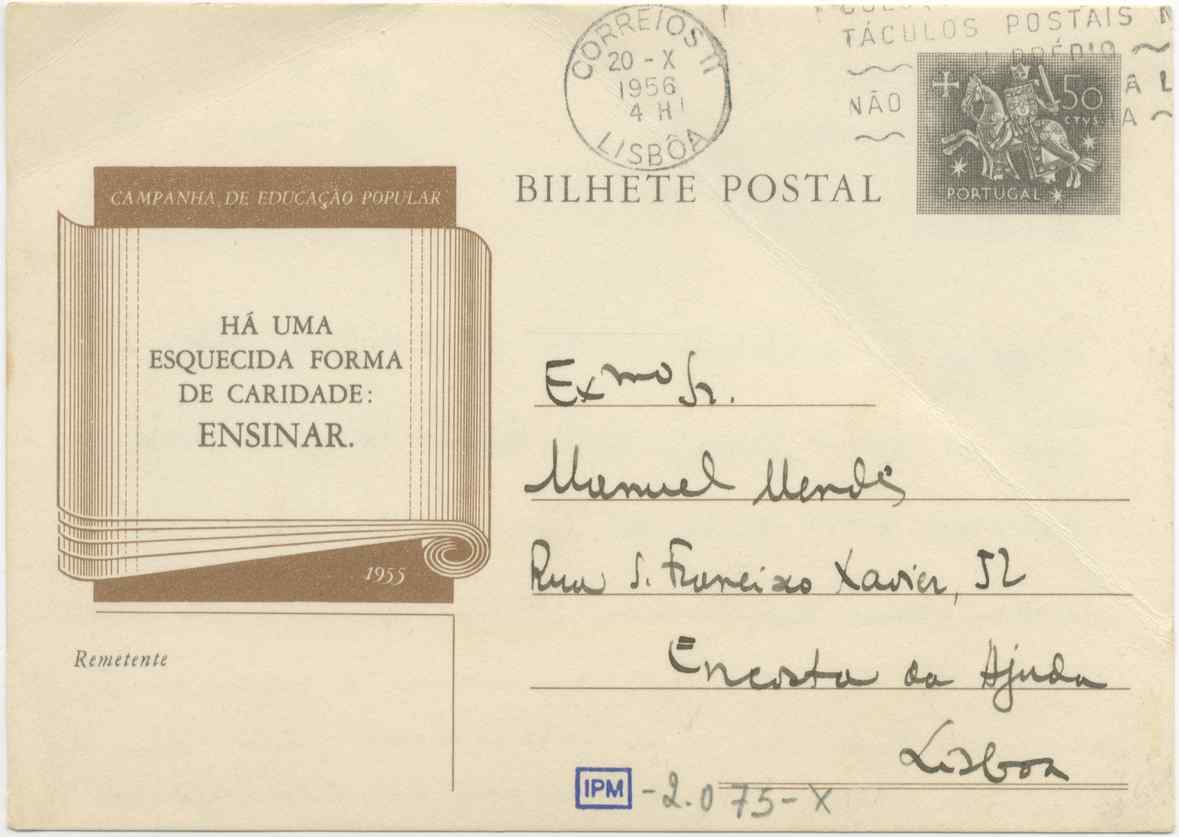 CORREIOS 11
20 - X
1956
4 H
LISBÔA
TÁCULOS POSTAIS
PRÉDIO
NÃO
50
CTVS.
PORTUGAL
BILHETE POSTAL
CAMPANHA DE EDUCAÇÃO POPULAR
HÁ UMA
ESQUECIDA FORMA
DE CARIDADE:
ENSINAR.
1955
Remetente
Exmo Sr.
Manuel Mendes
Rua S. Francisco Xavier, 52
Encosta da Ajuda
Lisboa
IPM -2.075-X